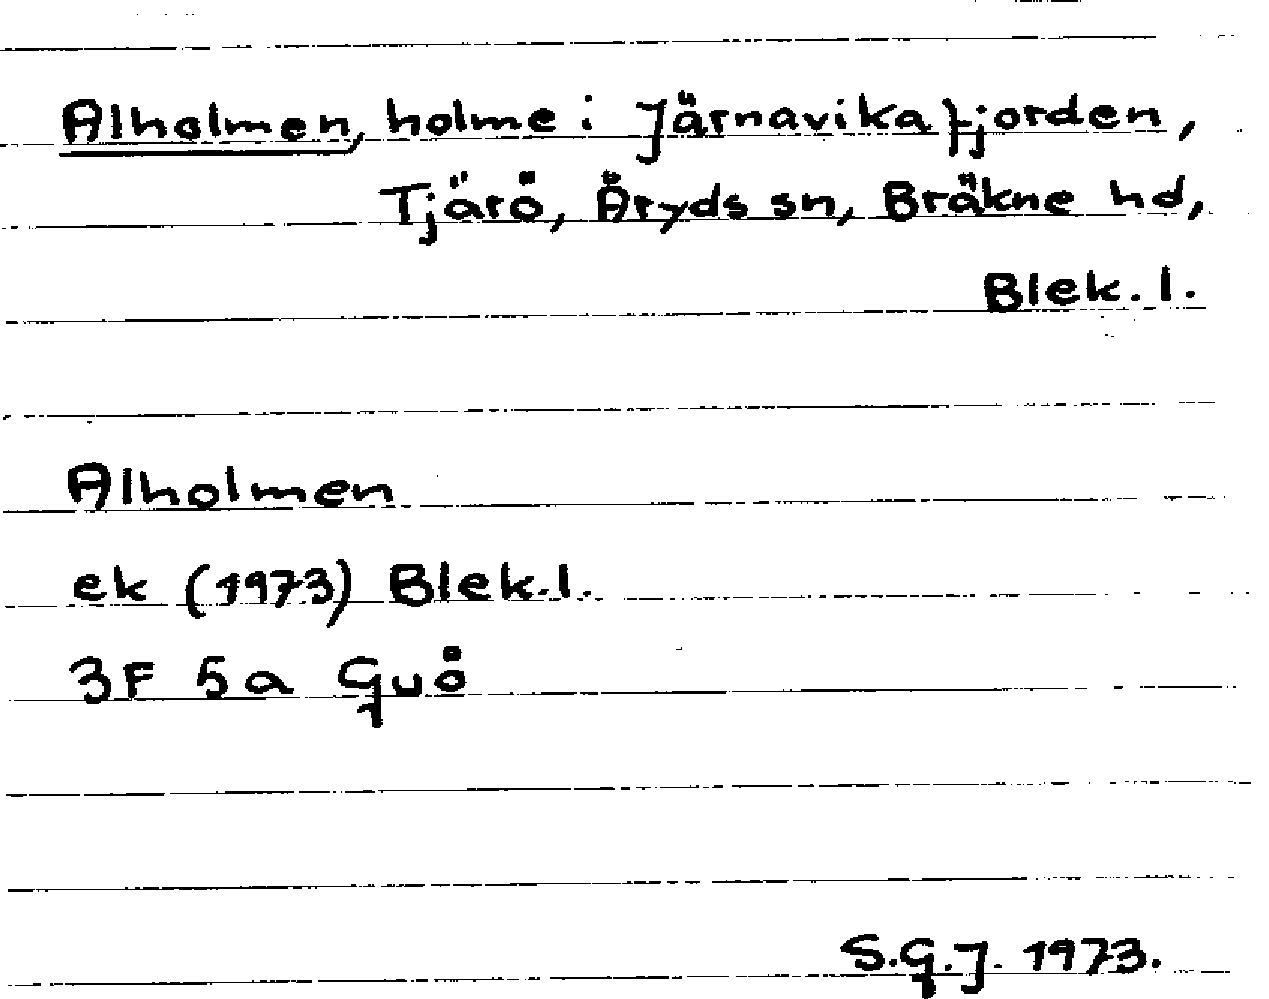 Alholmen, holme i Järnavikafjorden,
Tjärö, Åryds sn, Bräkne hd,
Blek. l.
Alholmen
ek (1973) Blek. l.
3F 5a Guö
S.G.J. 1973.